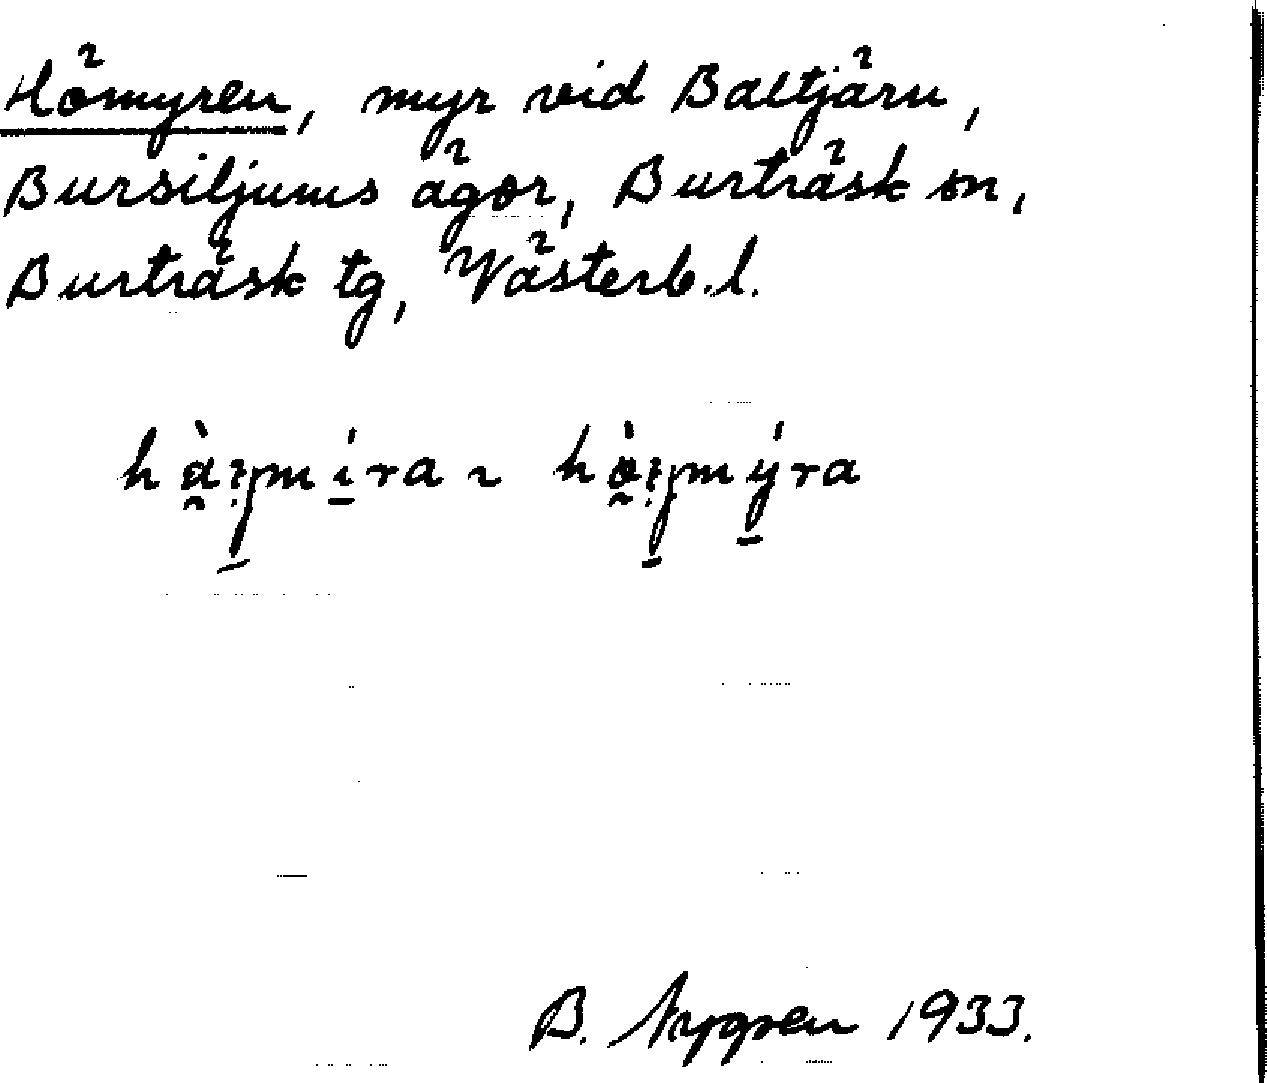 Hömyren, myr vid Baltjärn,
Bursiljums ägor, Burträsk sn,
Burträsk tg, Västerb.l.
B. Nygren 1933.